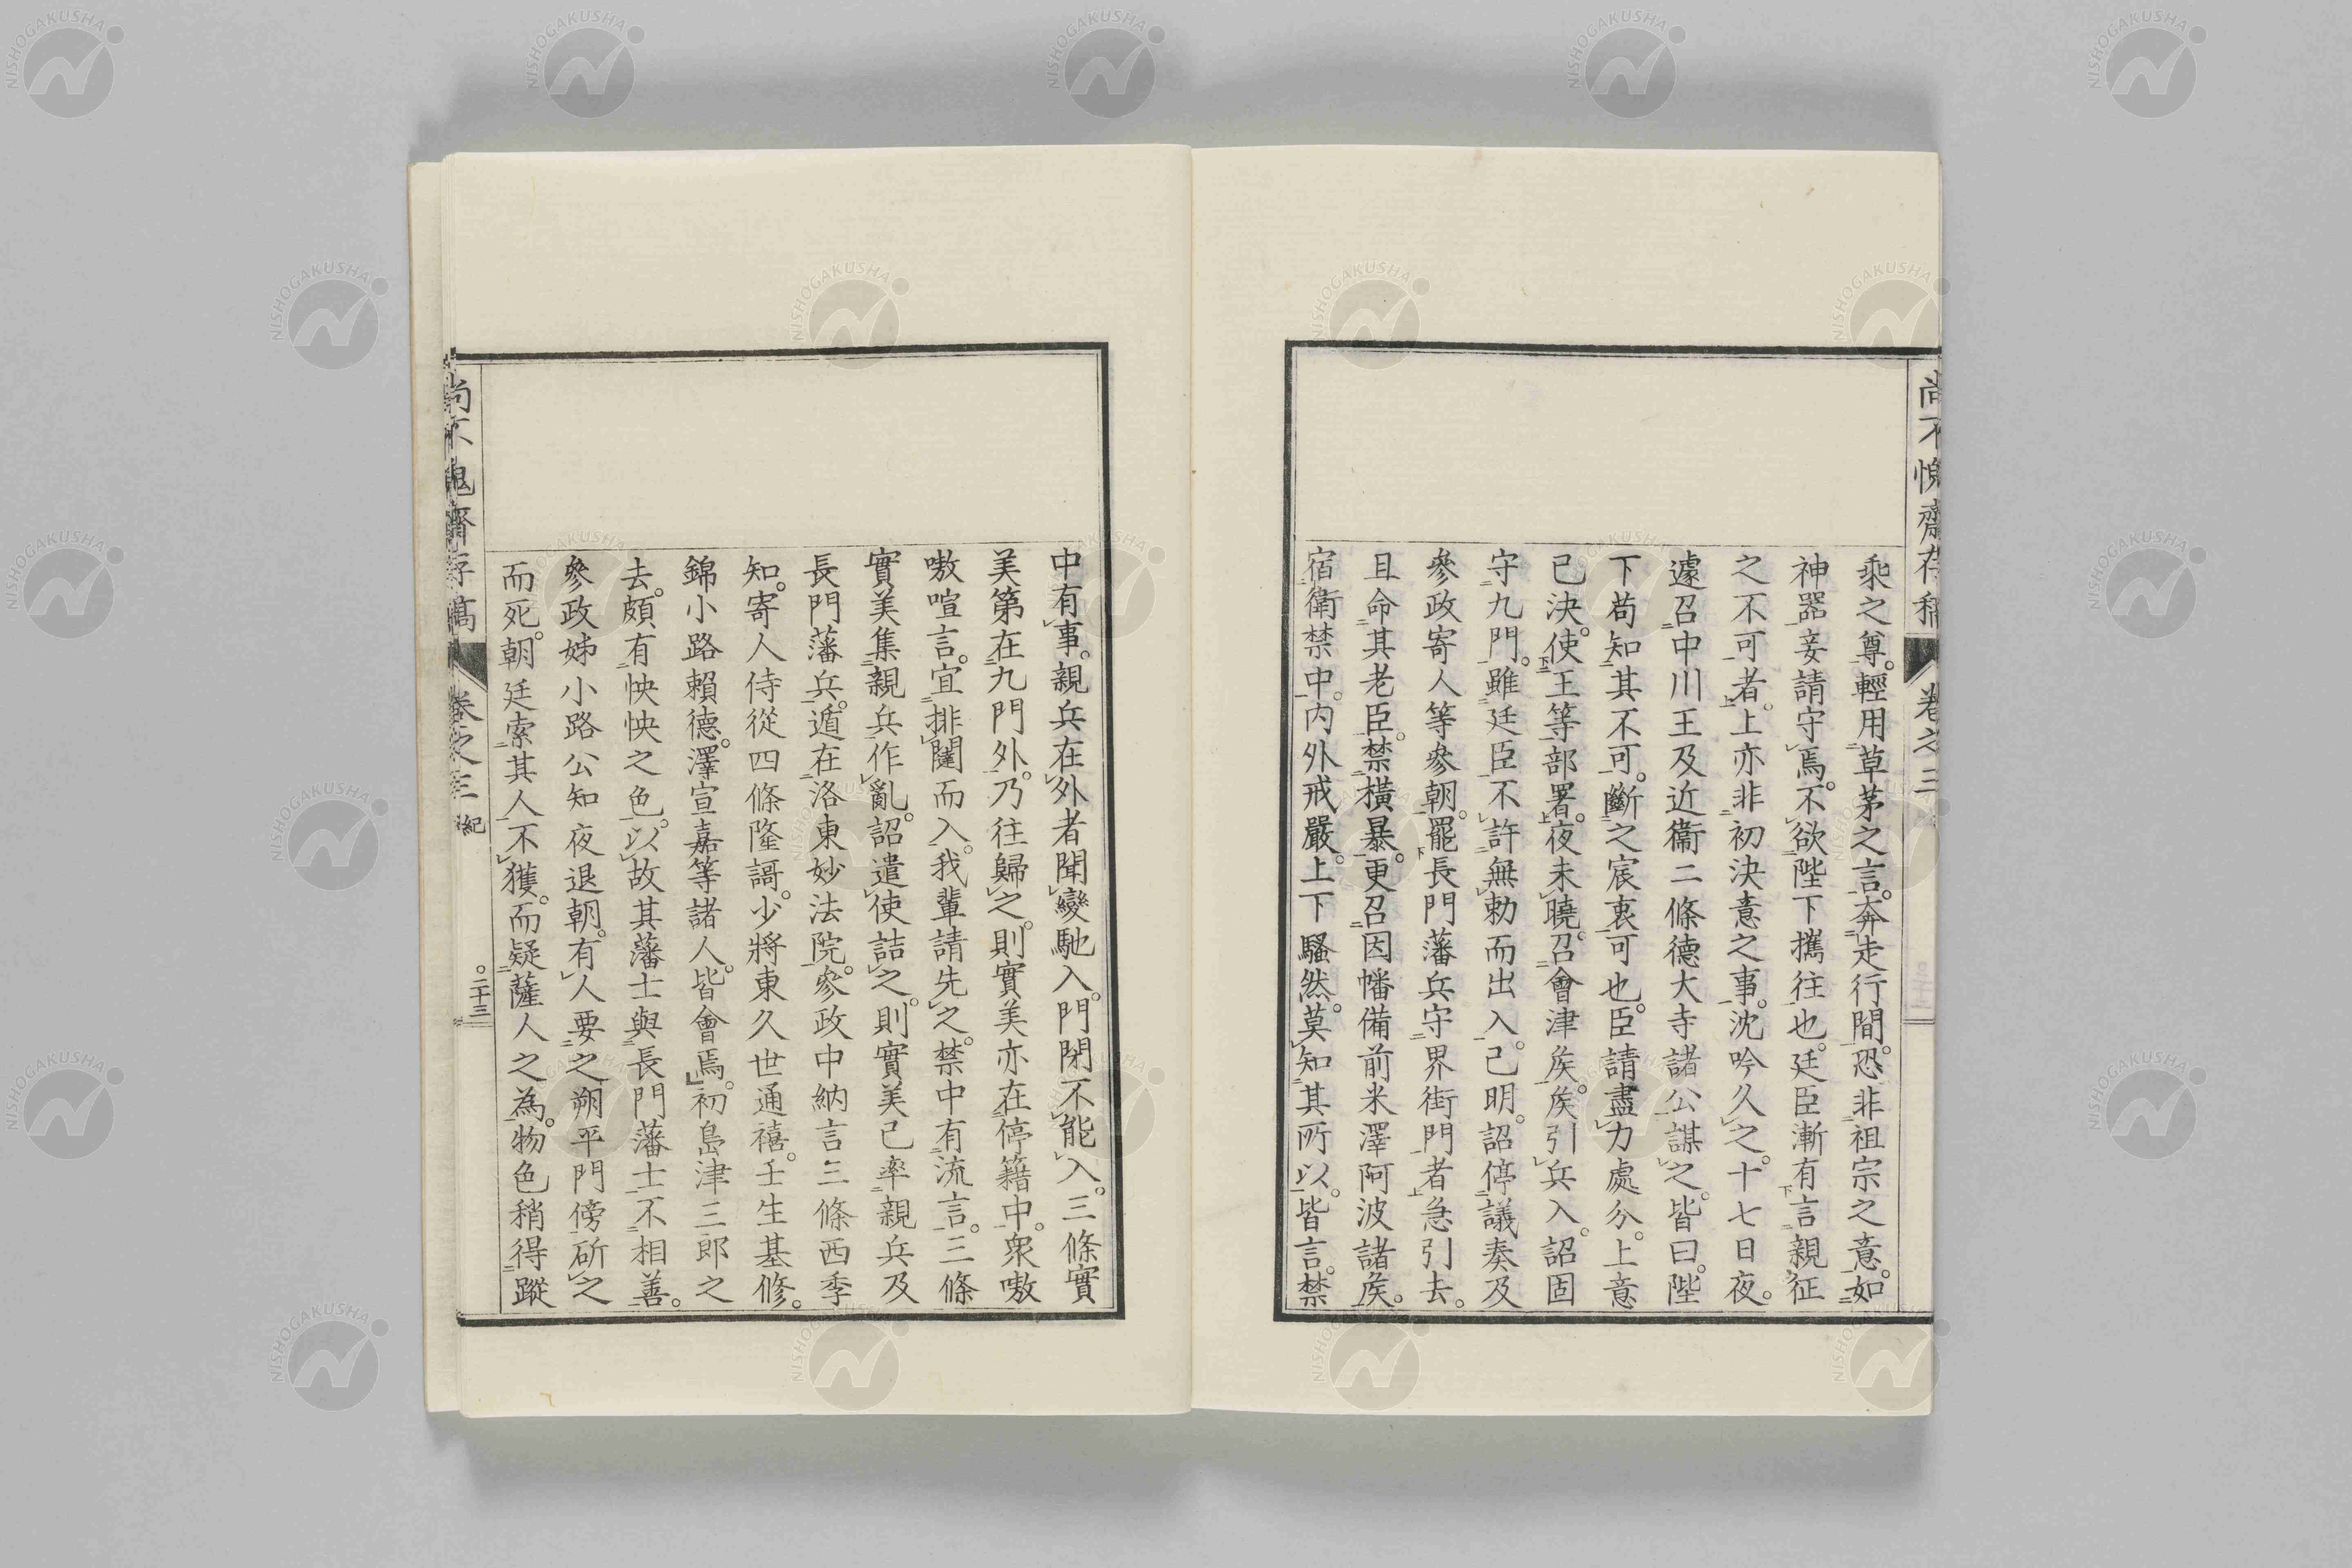 尚不愧齋存稿 卷之三
乘之尊。輕用草茅之言。奔走行間。恐非祖宗之意。如
神器妾請守焉。不欲陛下攜往也。廷臣漸有言親征
之不可者。上亦非初決意之事。沈吟久之。十七日夜。
遽召中川王及近衞二條德大寺諸公謀之。皆曰。陛
下苟知其不可。斷之宸衷可也。臣請盡力處分。上意
已決。使王等部署。夜未曉。召會津矦。矦引兵入。詔固
守九門。雖廷臣不許無勅而出入。已明。詔停議奏及
參政寄人等參朝。罷長門藩兵守界街門者。急引去。
且命其老臣。禁橫暴。更召因幡備前米澤阿波諸矦。
宿衞禁中。內外戒嚴。上下騷然。莫知其所以。皆言。禁
中有事。親兵在外者聞變馳入。門閉不能入。三條實
美第在九門外。乃往歸之。則實美亦在停籍中。衆嗷
嗷喧言。宜排闥而入。我輩請先之。禁中有流言。三條
實美集親兵作亂。詔遣使詰之。則實美已率親兵及
長門藩兵。遁在洛東妙法院。參政中納言三條西季
知。寄人侍從四條隆謌。少將東久世通禧。壬生基修。
錦小路賴德。澤宣嘉等諸人。皆會焉。初島津三郎之
去。頗有怏怏之色。以故其藩士與長門藩士不相善。
參政姊小路公知夜退朝。有人要之朔平門傍斫之
而死。朝廷索其人不獲。而疑薩人之為。物色稍得蹤
尚不愧齋存稿 卷之三 紀 二十三